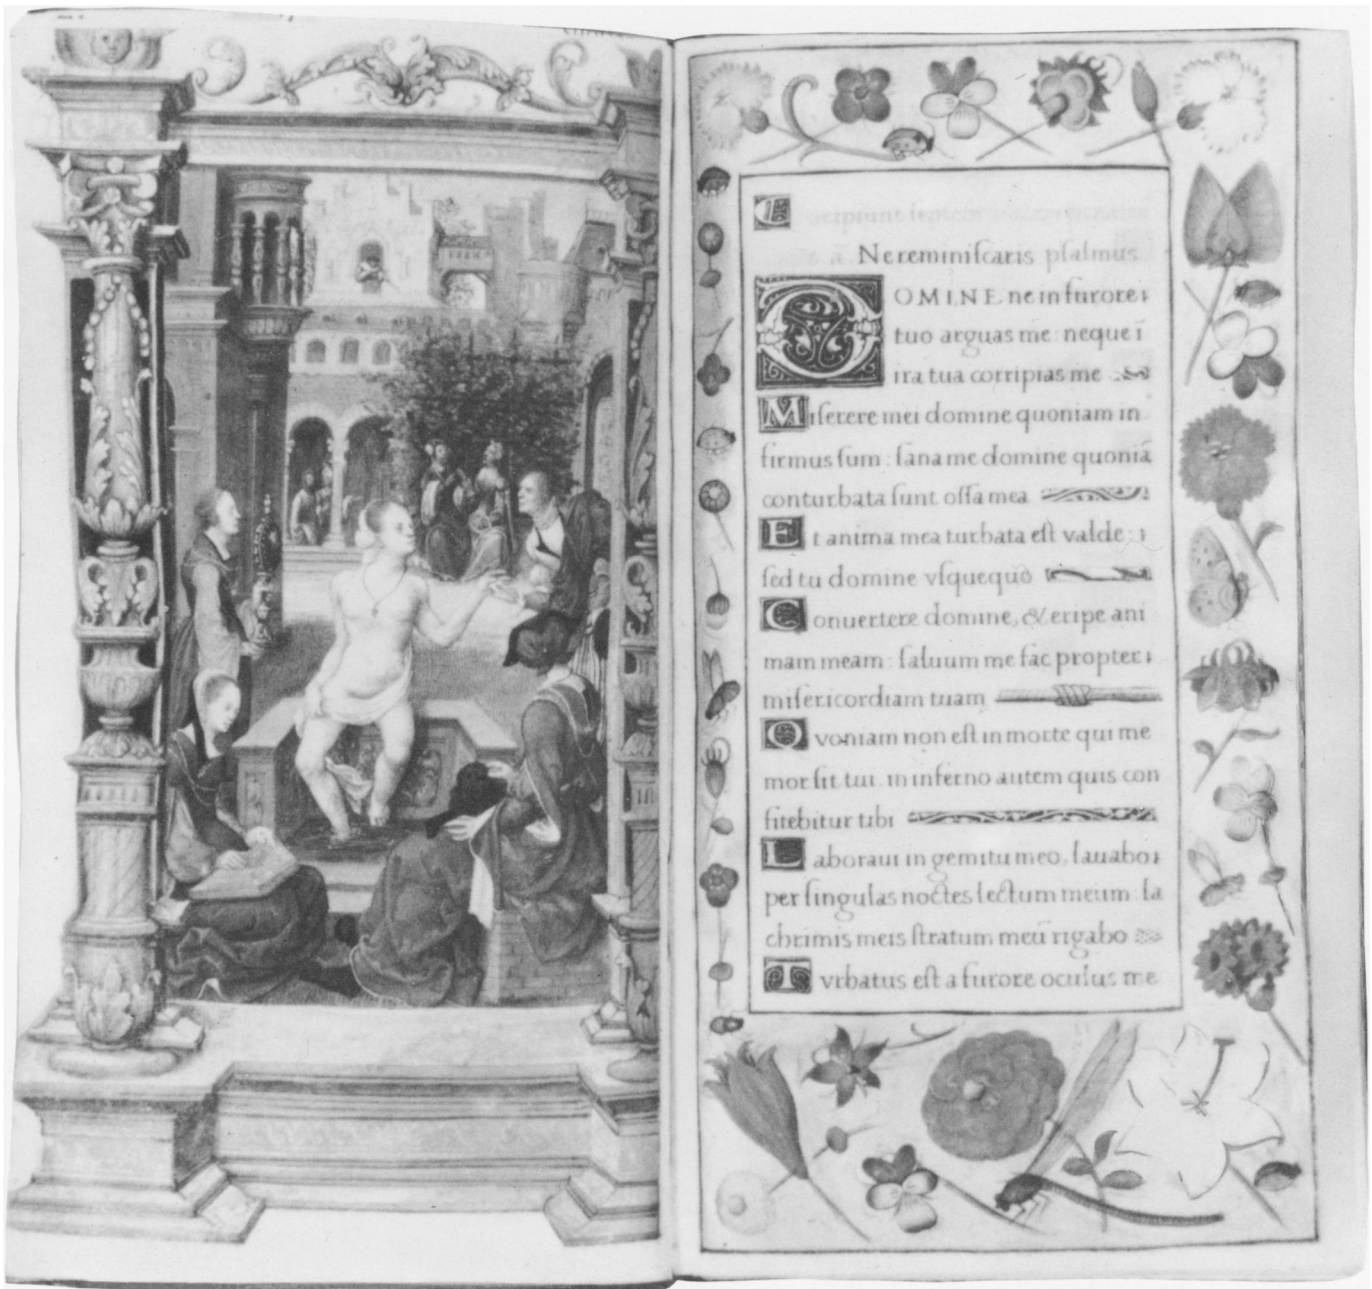 Ne reminiſcaris pſalmus
DOMINE ne in furore
tuo arguas me: neque ī
ira tua corripias me
Miſerere mei domine quoniam in
firmus ſum: ſana me domine quoniā
conturbata ſunt oſſa mea
Et anima mea turbata eſt valde:
ſed tu domine vſquequo
Conuertere domine, & eripe ani
mam meam: ſaluum me fac propter
miſericordiam tuam
Quoniam non eſt in morte qui me
mor ſit tui. in inferno autem quis con
fitebitur tibi
Laboraui in gemitu meo, lauabo
per ſingulas noctes lectum meum: la
chrimis meis ſtratum meū rigabo
Turbatus eſt a furore oculus me